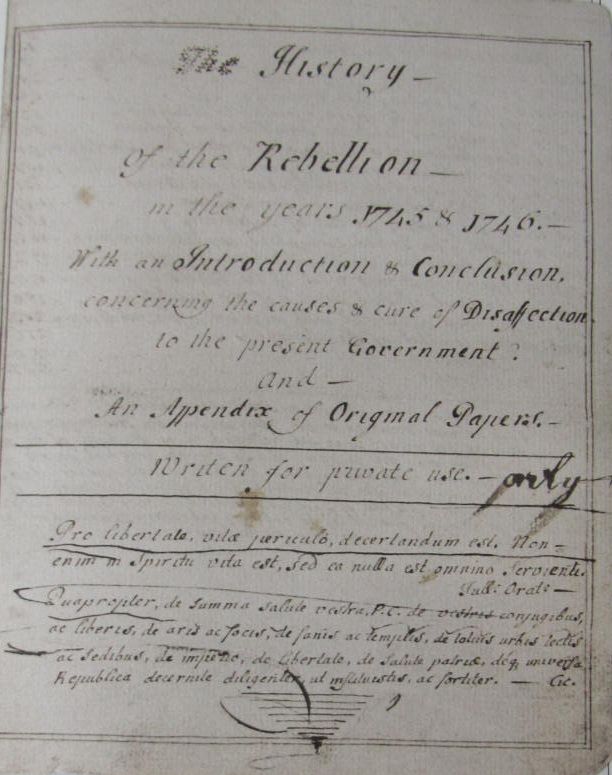 The History —
of the Rebellion —
in the years 1745 & 1746. —
With an Introduction & Conclusion,
concerning the causes & cure of Disaffection
to the present Government.
And —
An Appendix of Original Papers. —
Writen for private use. — only
Pro libertate, vitæ periculo, decertandum est. Non —
enim in Spiritu vita est, sed ea nulla est omnino Servienti.
Tull: Orat: —
Quapropter, de summa salute vestra, P.C. de vestris conjugibus,
ac liberis, de aris ac focis, de fanis ac templis, de totius urbis tectis
ac sedibus, de imperio, de libertate, de salute patriæ, deq universa
Republica decernite diligenter, ut instituistis, ac fortiter. — Cic.